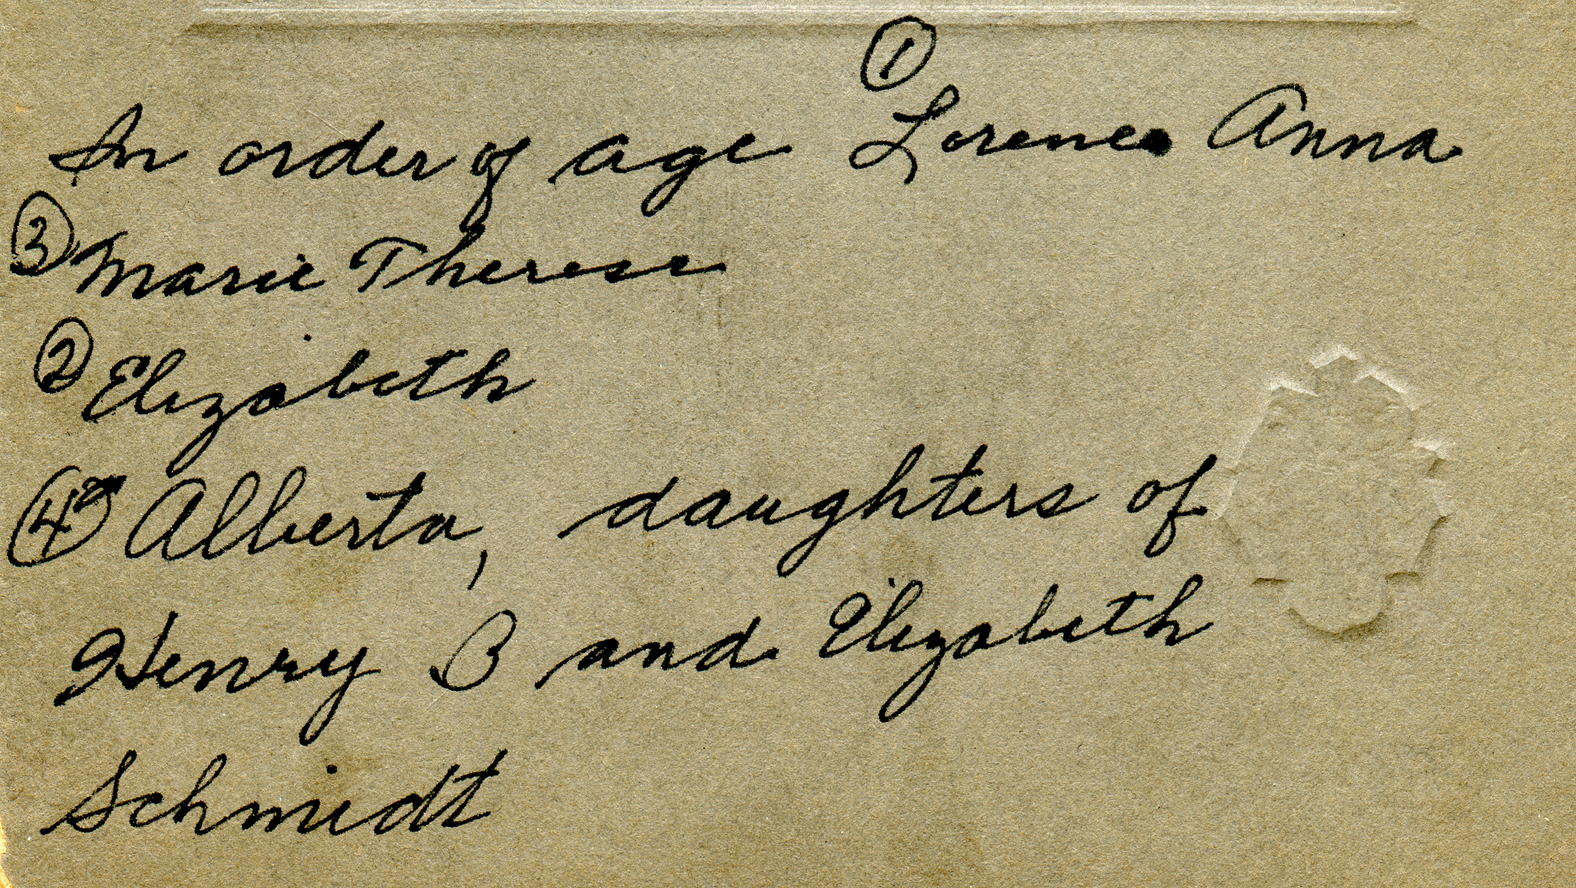 ①
In order of age Lorene Anna
③ Marie Therese
② Elizabeth
④ Alberta, daughters of
Henry B and Elizabeth
Schmidt